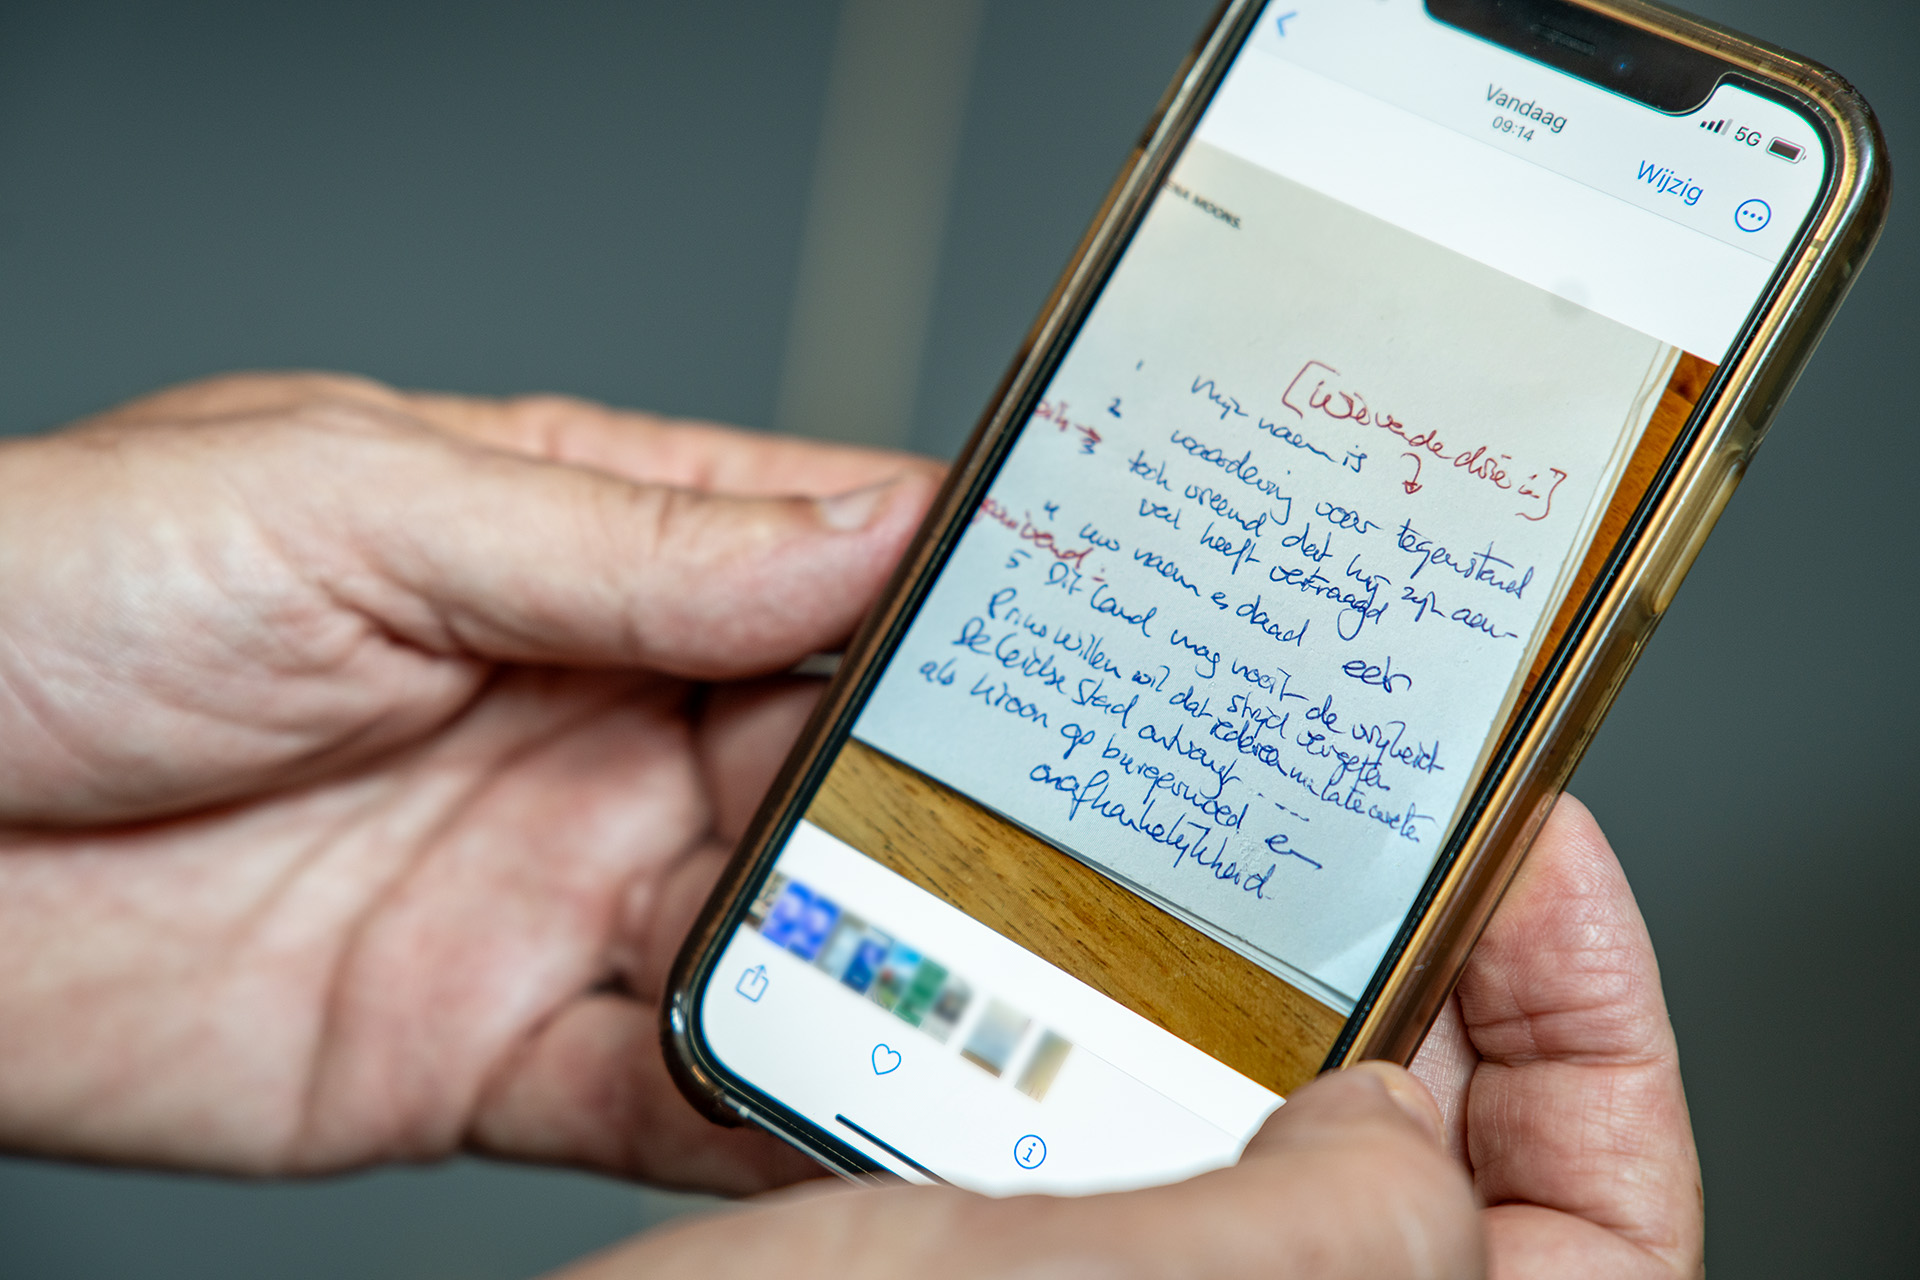 Vandaag
09:14
5G
Wijzig
NA MOONS.
[Wie van de drie in]
1 Mijn naam is
2 waardering voor tegenstand
3 toch vreemd dat hij zijn aan-
val heeft vertraagd
4 uw naam es daad eer
5 Dit land mag nooit de vrijheid
Prins Willem wil dat strijd vergeten
De Leidse Stad ontvangt ---
als kroon op burgermoed en
onafhankelijkheid.